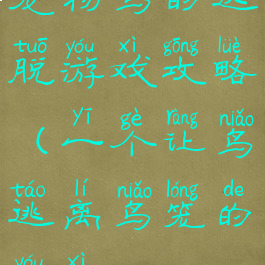 宠物鸟的逃
tuō yóu xì gōng lüè
脱游戏攻略
yī gè ràng niǎo
(一个让鸟
táo lí niǎo lóng de
逃离鸟笼的
yóu xì